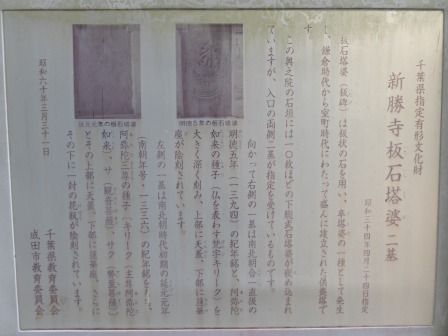 千葉県指定有形文化財
新勝寺板石塔婆 二基
昭和三十四年四月二十四日指定
板石塔婆（板碑）は板状の石を用い、卒塔婆の一種として発生
し、鎌倉時代から室町時代にわたって盛んに建立された供養塔で
す。
この奥之院の石垣には一〇枚ほどの下総式板石塔婆が嵌め込まれ
ていますが、入口の両側二基が指定を受けているものです。
向かって右側の一基は南北朝合一直後の
明徳五年（一三九四）の紀年銘と、阿弥陀
如来の種子（仏を表わす梵字キリーク）を
大きく深く刻み、上部に天蓋、下部に蓮華
座が陰刻されています。
左側の一基は南北朝時代初期の延元元年
（南朝年号・一三三六）の紀年銘を有し、
阿弥陀三尊の種子（キリーク（主尊阿弥陀
如来）、サ（観音菩薩）、サク（勢至菩薩）
とその上部に天蓋、下部に蓮華座、さらに
その下に一対の花瓶が陰刻されています
昭和六十年三月三十一日
千葉県教育委員会
成田市教育委員会
明徳五年の板石塔婆
延元元年の板石塔婆